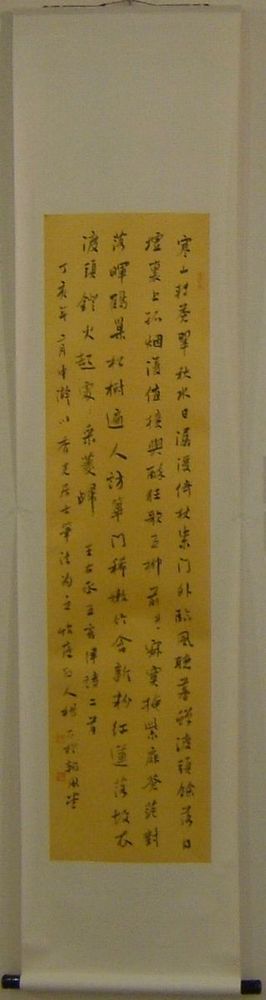 寒山轉蒼翠秋水日潺湲倚杖柴門外臨風聽暮蟬渡頭餘落日
墟裏上孤烟復值接輿醉狂歌五柳前寂寞掩柴扉蒼茫對
落暉鶴巢松樹遍人訪蓽門稀嫩竹含新粉紅蓮落故衣
渡頭燈火起處々采菱歸 王右丞五言律詩二首
丁亥年二月中澣以香光居士筆法為之